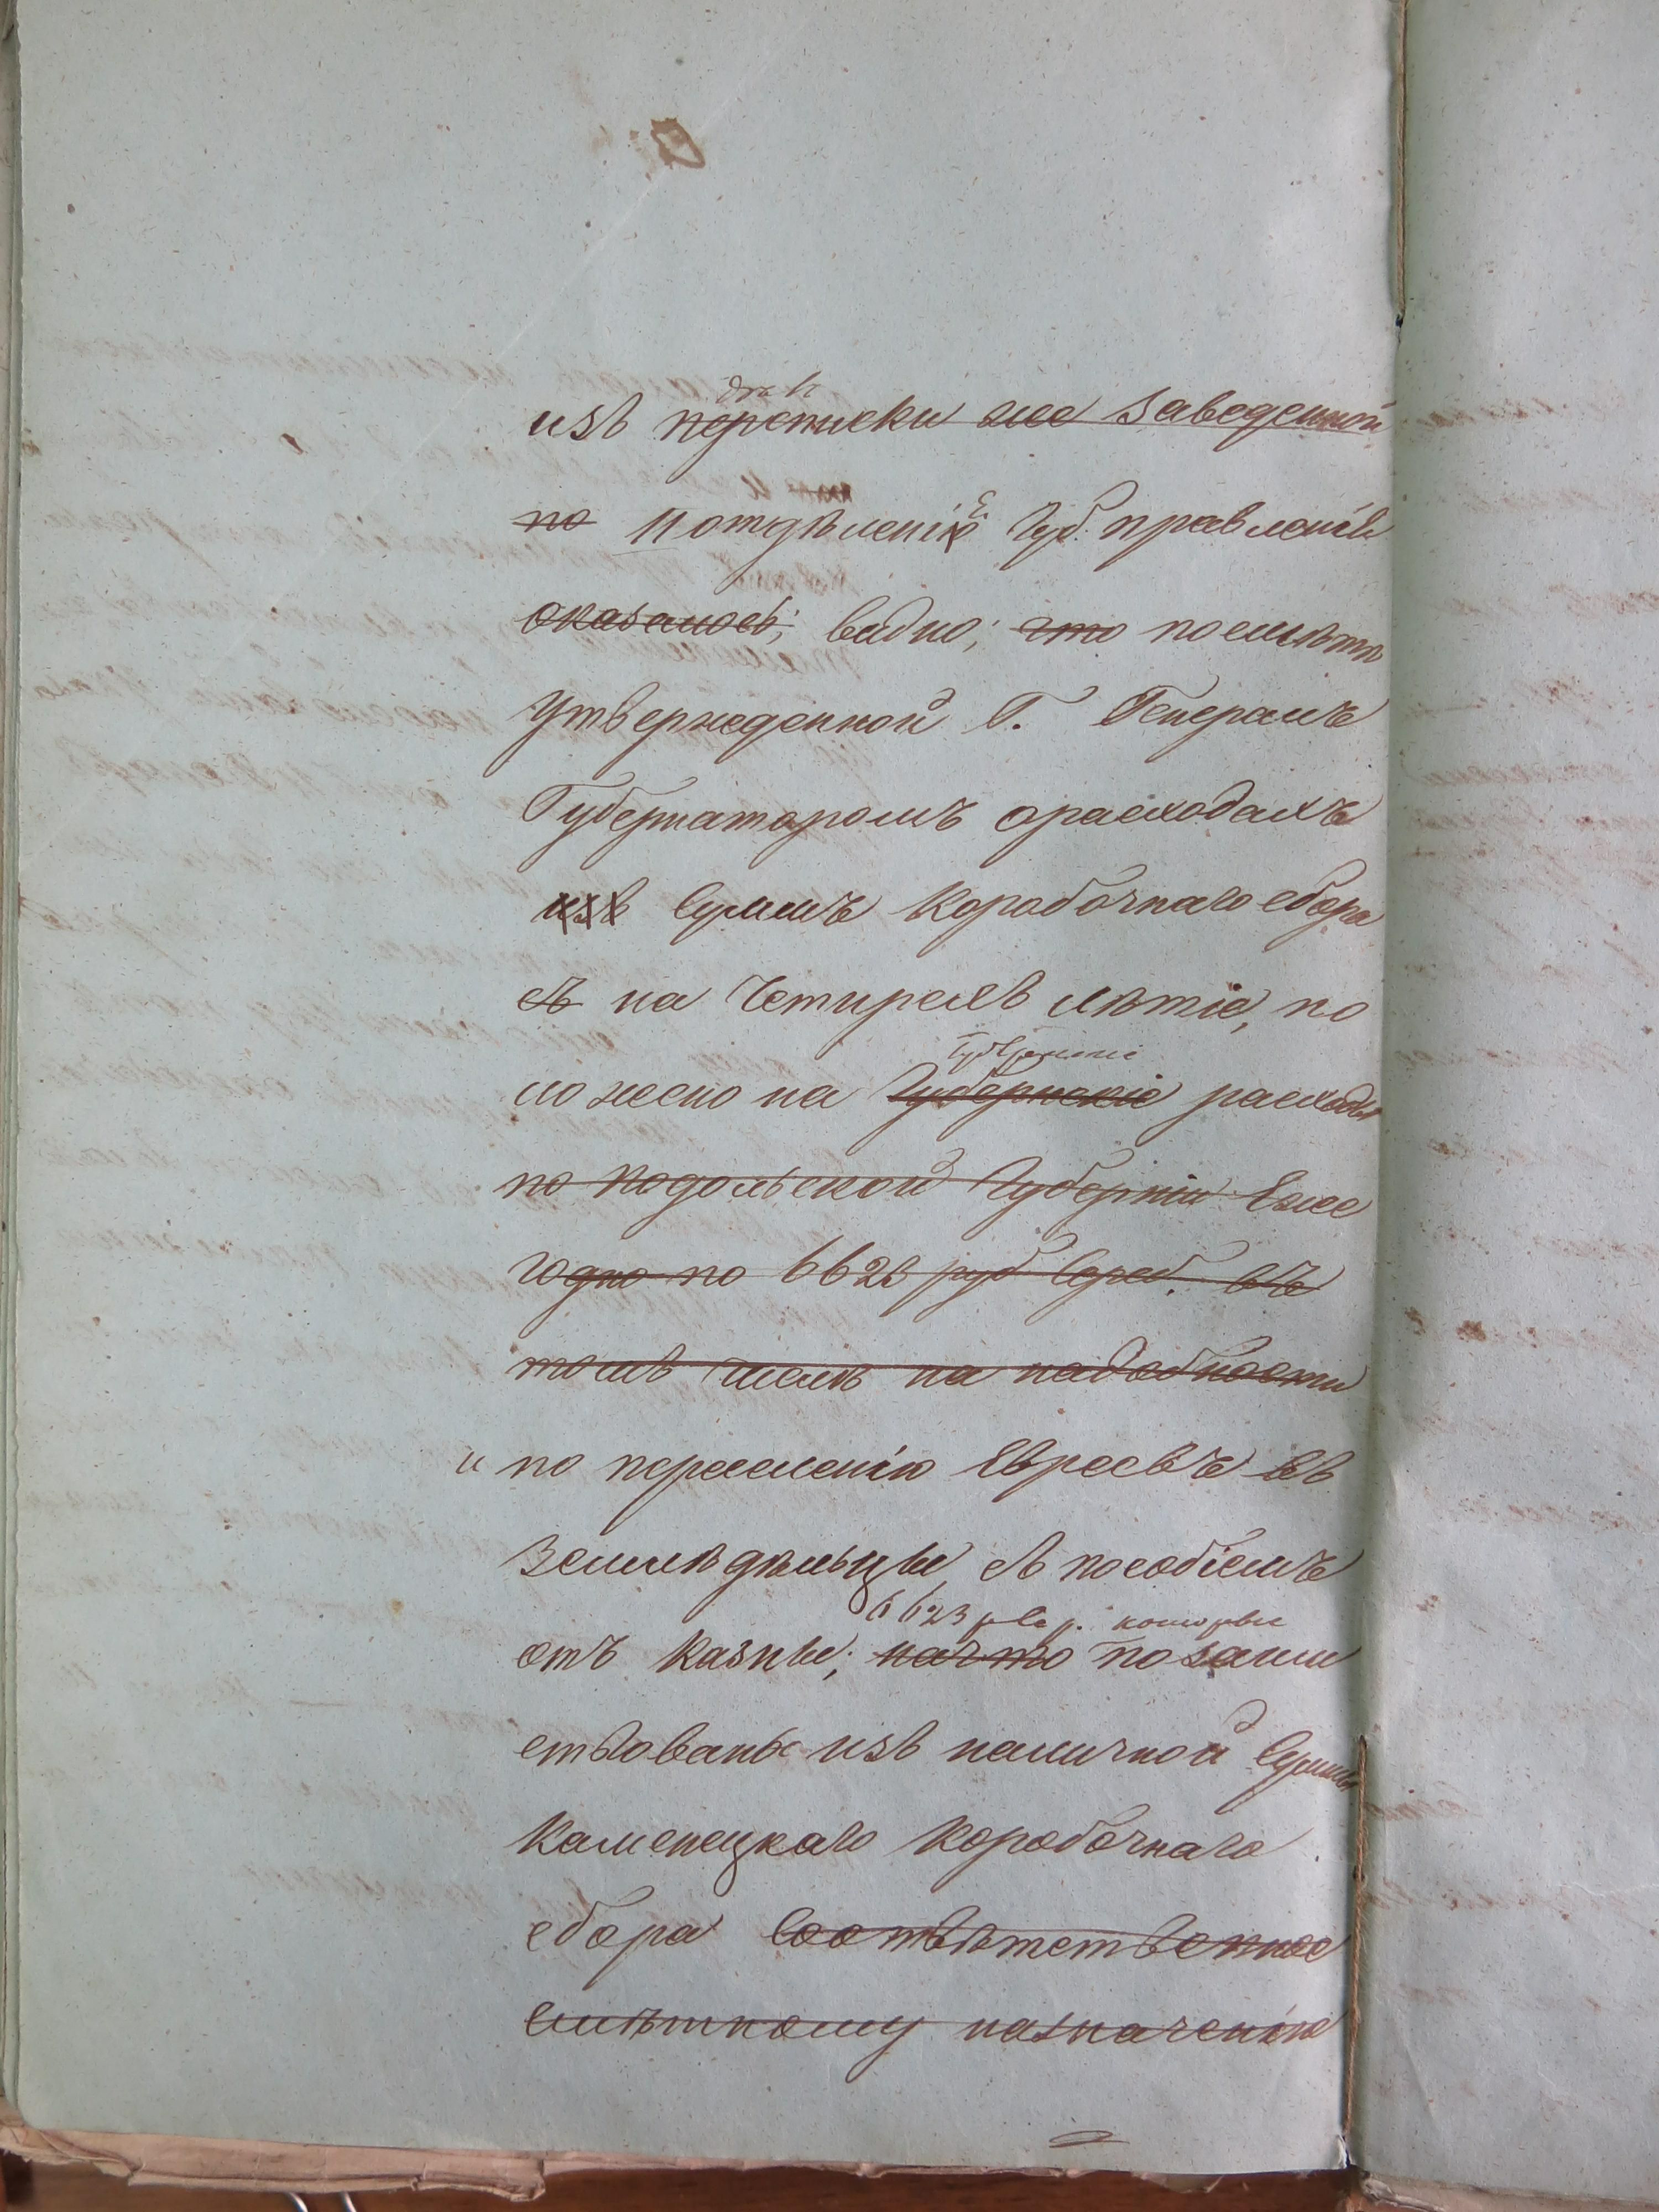 дѣлъ
изъ переписки же заведенной
по II отдѣленіе Губ. правленія
оказалось; видно; что по смѣтѣ
утвержденной Г. Генералъ
Губернаторомъ о расходахъ
изъ суммъ коробочнаго сбора
съ на четирехъ лѣтіе, по
ложено на Губернскіе расходы
по Подольской Губерніи еже
годно по 6623 руб сереб. въ
томъ числѣ на надобности
и по переселенію Евреевъ въ
земледѣльцы, съ пособіемъ
6623 р. сер. которые
отъ казны; на что позаим
ствованы изъ наличной суммы
Каменецкаго коробочнаго
сбора соотвѣтственное
смѣтному назначенію